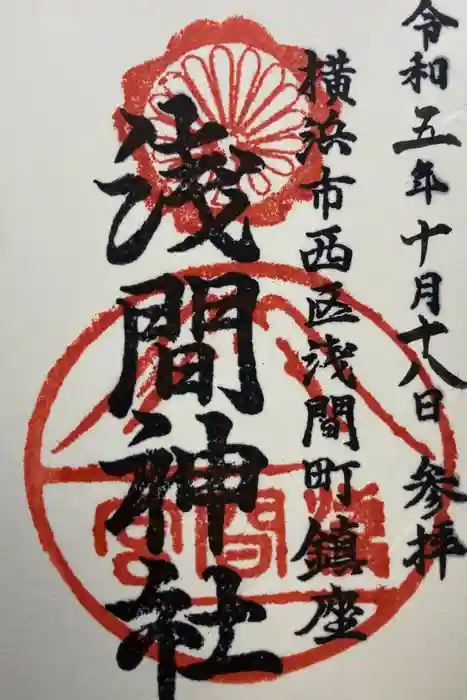 令和五年十月十八日 参拝
横浜市西区浅間町鎮座
浅間神社
淺間宮